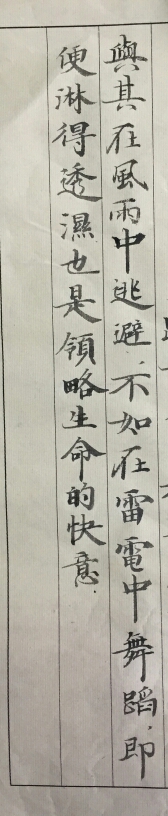 與其在風雨中逃避、不如在雷電中舞蹈、即
便淋得透濕也是領略生命的快意.